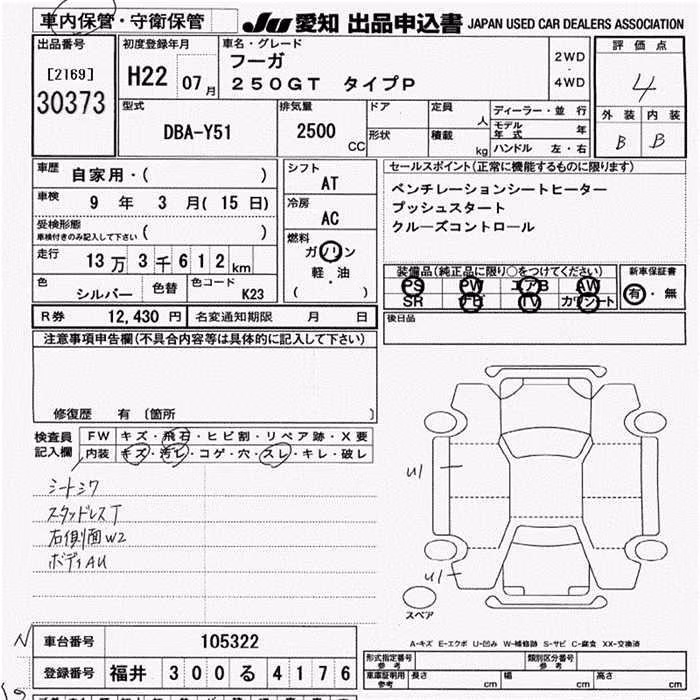 車内保管・守衛保管
JU 愛知 出品申込書 JAPAN USED CAR DEALERS ASSOCIATION
出品番号
[2169]
30373
初度登録年月
H22 07月
車名・グレード
フーガ
250GT タイプP
2WD
・
4WD
評価点
4
外装 内装
B B
型式
DBA-Y51
排気量
2500
CC
ドア
形状
定員
人
積載
kg
ディーラー・並 行
モデル年式 年
ハンドル 左・右
車歴
自家用・( )
車検
9 年 3 月( 15 日)
受検形態
車検付きのみ記入して下さい ( )
走行
13万3千612km
色
シルバー
色替
色コード
K23
シフト
AT
冷房
AC
燃料
ガソリン
・
軽・油
( )
セールスポイント(正常に機能するものに限ります)
ベンチレーションシートヒーター
プッシュスタート
クルーズコントロール
装備品(純正品に限り○をつけてください)
PS PW エアB AW
SR ナビ TV カワシート
新車保証書
有・無
後日品
R券 12,430 円 名変通知期限 月 日
注意事項申告欄(不具合内容等は具体的に記入して下さい)
修復歴 有 〔箇所 〕
検査員
記入欄
FW キズ・飛石・ヒビ割・リペア跡・X要
内装 キズ・汚レ・コゲ・穴・スレ・キレ・破レ
シートシワ
スタッドレスT
右側面W2
ボディAU
U1
U1
スペア
A-キズ E-エクボ U-凹み W-補修跡 S-サビ C-腐食 XX-交換済
N
車台番号 105322
登録番号 福井 300 る 4176
形式指定番号
参考
類別区分番号
参考
車庫証明用
参考
長さ cm 幅 cm 高さ cm